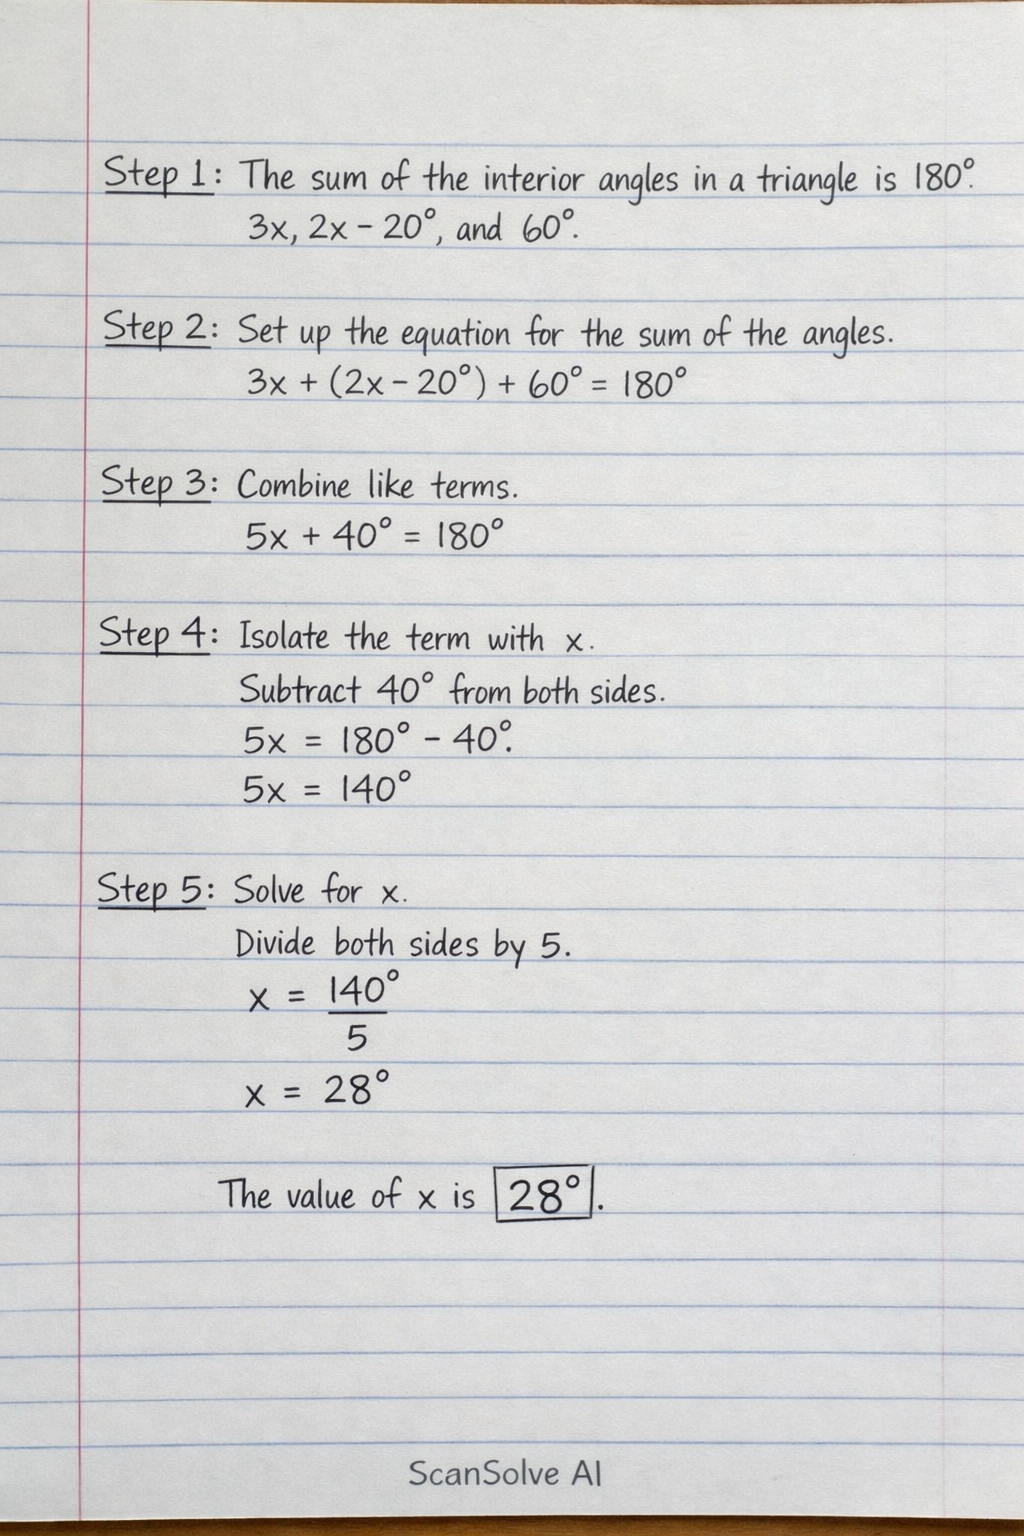 Step 1: The sum of the interior angles in a triangle is 180°.
3x, 2x - 20°, and 60°.
Step 2: Set up the equation for the sum of the angles.
3x + (2x - 20°) + 60° = 180°
Step 3: Combine like terms.
5x + 40° = 180°
Step 4: Isolate the term with x.
Subtract 40° from both sides.
5x = 180° - 40°.
5x = 140°
Step 5: Solve for x.
Divide both sides by 5.
x = 140°
5
x = 28°
The value of x is 28°.
ScanSolve AI